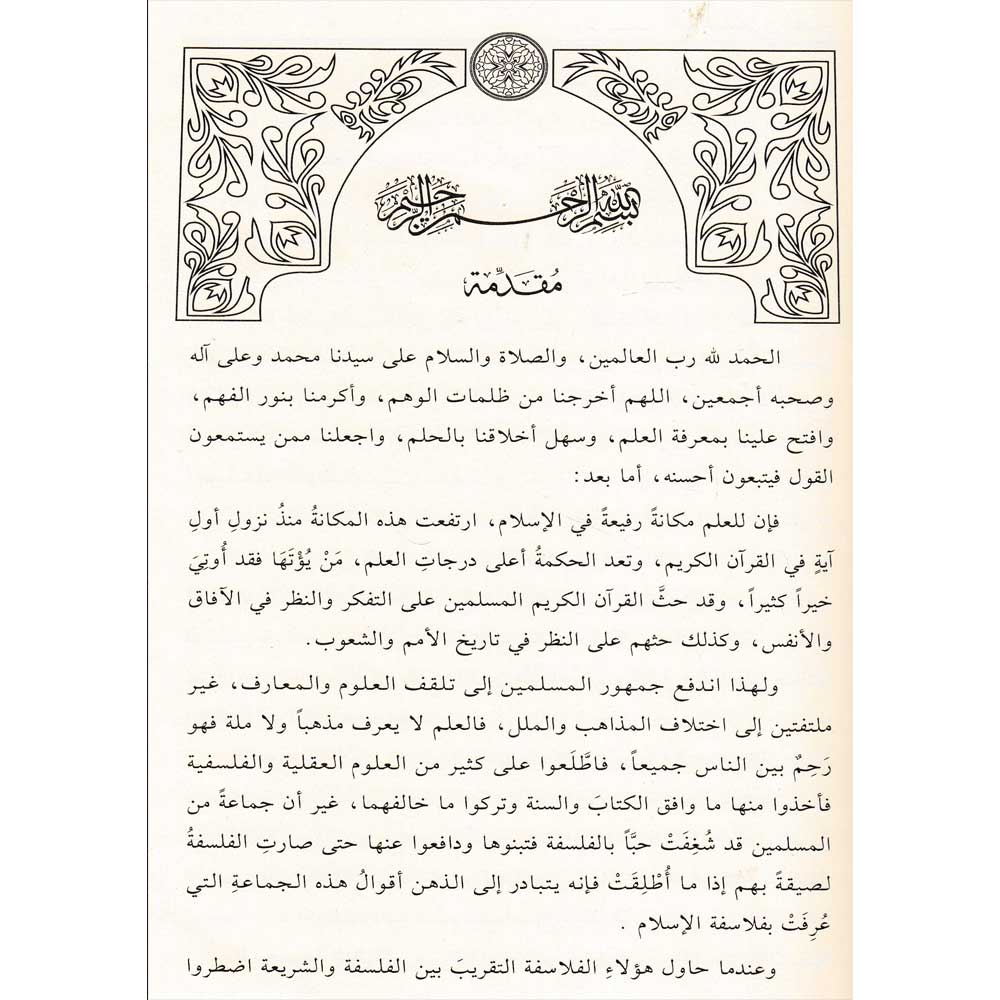 بسم الله الرحمن الرحيم
مُقدِّمة
الحمد لله رب العالمين، والصلاة والسلام على سيدنا محمد وعلى آله
وصحبه أجمعين، اللهم أخرجنا من ظلمات الوهم، وأكرمنا بنور الفهم،
وافتح علينا بمعرفة العلم، وسهل أخلاقنا بالحلم، واجعلنا ممن يستمعون
القول فيتبعون أحسنه، أما بعد:
فإن للعلم مكانةً رفيعةً في الإسلام، ارتفعت هذه المكانةُ منذُ نزولِ أولِ
آيةٍ في القرآن الكريم، وتعد الحكمةُ أعلى درجاتِ العلم، مَنْ يُؤْتَهَا فقد أُوتِيَ
خيراً كثيراً، وقد حثَّ القرآن الكريم المسلمين على التفكر والنظر في الآفاق
والأنفس، وكذلك حثهم على النظر في تاريخ الأمم والشعوب.
ولهذا اندفع جمهور المسلمين إلى تلقف العلوم والمعارف، غير
ملتفتين إلى اختلاف المذاهب والملل، فالعلم لا يعرف مذهباً ولا ملة فهو
رَحِمٌ بين الناس جميعاً، فاطَّلَعوا على كثير من العلوم العقلية والفلسفية
فأخذوا منها ما وافق الكتابَ والسنة وتركوا ما خالفهما، غير أن جماعةً من
المسلمين قد شُغِفَتْ حبَّاً بالفلسفة فتبنوها ودافعوا عنها حتى صارتِ الفلسفةُ
لصيقةً بهم إذا ما أُطْلِقَتْ فإنه يتبادر إلى الذهن أقوالُ هذه الجماعةِ التي
عُرِفَتْ بفلاسفة الإسلام .
وعندما حاول هؤلاءِ الفلاسفة التقريبَ بين الفلسفة والشريعة اضطروا